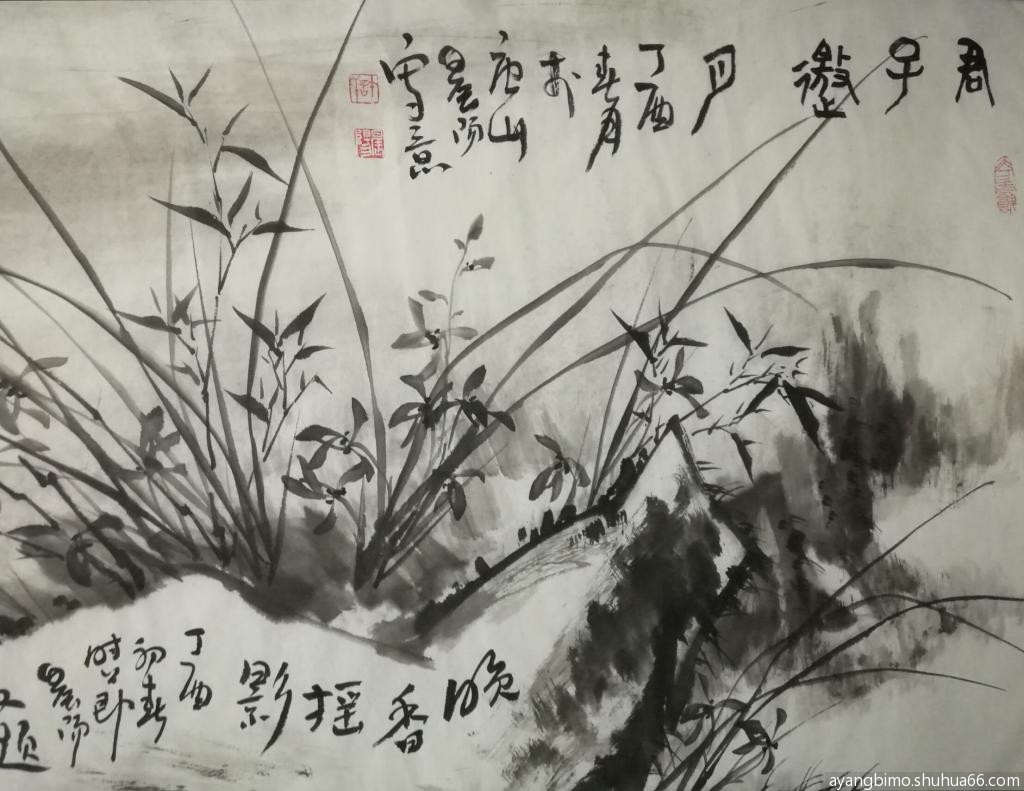 君子邀月
丁酉
春月
於
唐山
晨阳
写意
晚香摇影
丁酉
初春
晨阳
又题
ayangbimo.shuhua66.com